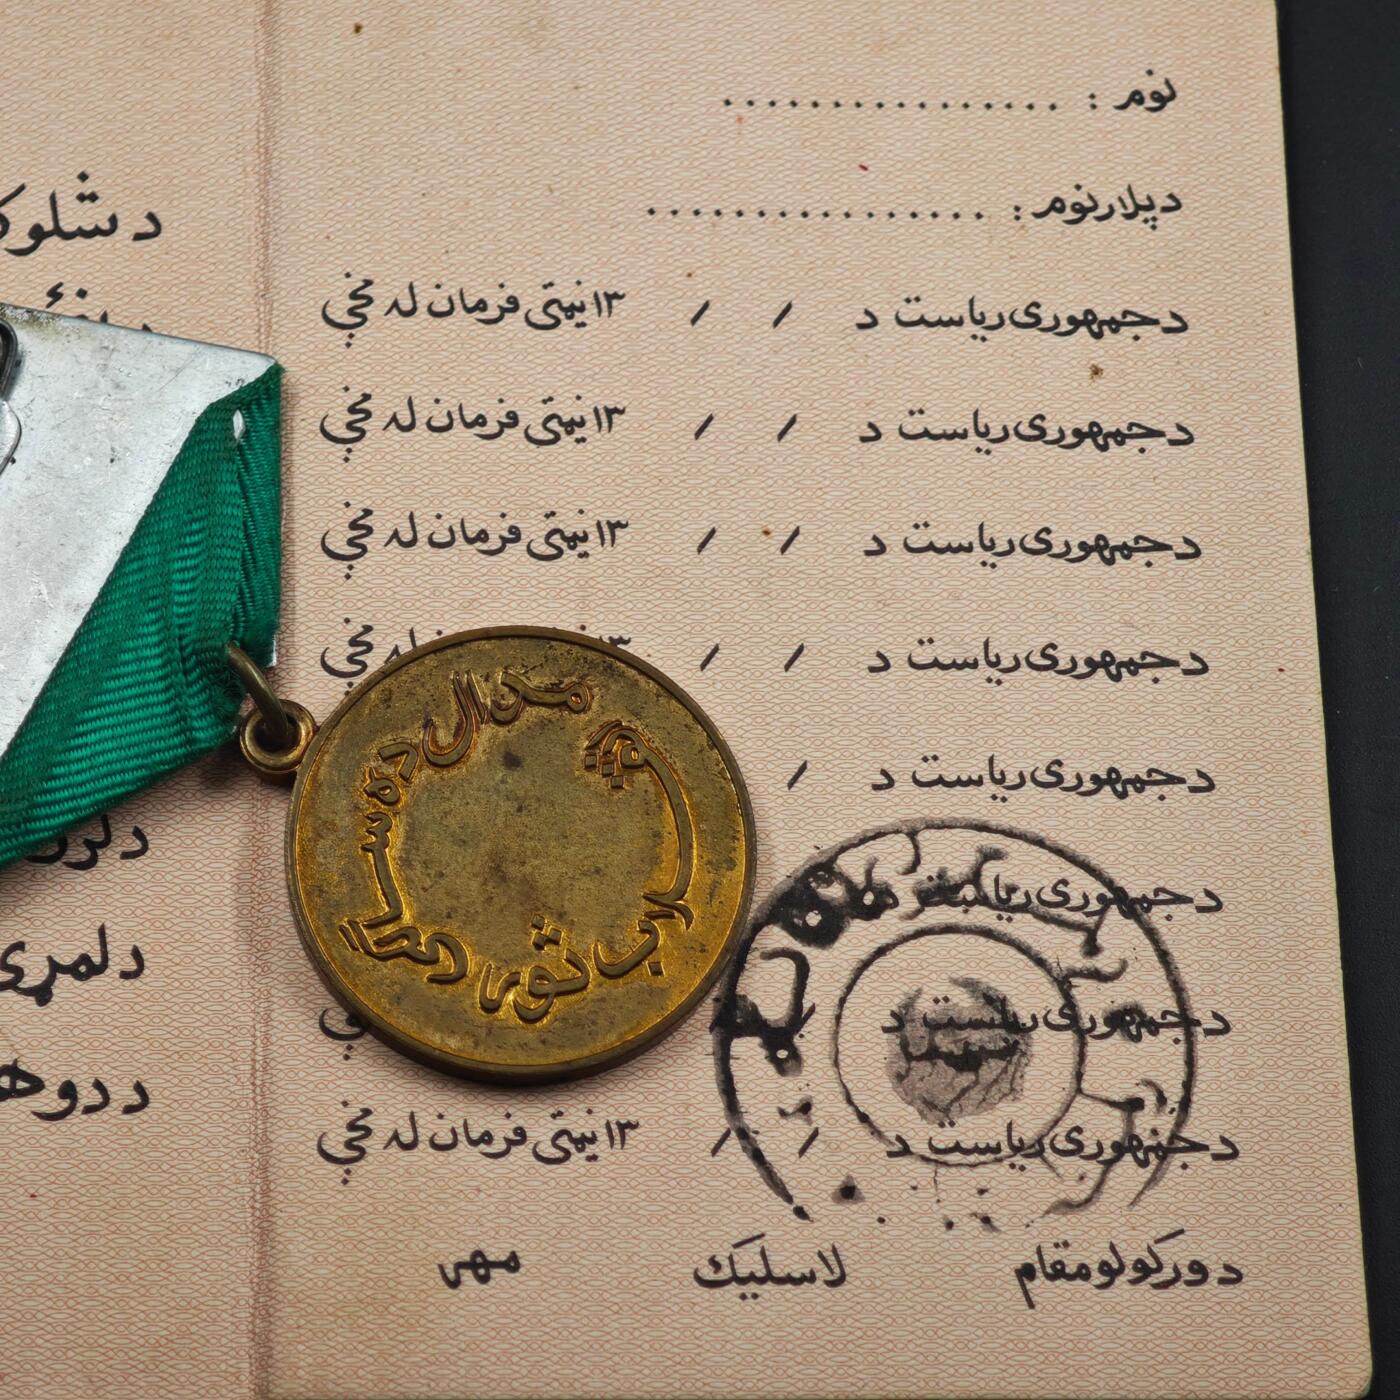 نوم : ................
د پلار نوم : ................
د جمهوری ریاست د / / ۱۳ نیټې فرمان له مخې
د جمهوری ریاست د / / ۱۳ نیټې فرمان له مخې
د جمهوری ریاست د / / ۱۳ نیټې فرمان له مخې
د جمهوری ریاست د / / ۱۳ له مخې
د جمهوری ریاست د /
د جمهوری ریاست د
د جمهوری ریاست د
د جمهوری ریاست د / / ۱۳ نیټې فرمان له مخې
د ورکولو مقام لاسلیک مهر
د
د لمړی
د دوه
مدال ده سالگرد انقلاب ثور